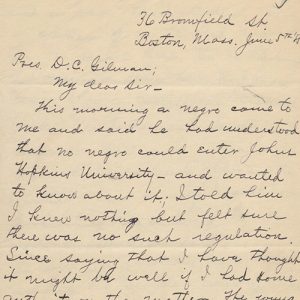 76 Bromfield St
Boston, Mass. June 5th
Pres. D. C. Gilman;
My dear Sir—
This morning a negro came to
me and said he had understood
that no negro could enter Johns
Hopkins University— and wanted
to know about it; I told him
I knew nothing but felt sure
there was no such regulation.
Since saying that I have thought
it might be well if I had some
on the matter. The young